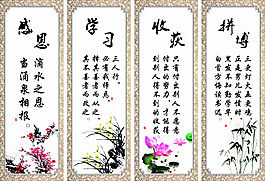 感恩
滴水之恩
当涌泉相报
学习
三人行，
必有我师焉
择其善者而从之
其不善者而改之
收获
只有付出别人不愿意
付出的努力，才能得
到别人得不到的收获
拼搏
三更灯火五更鸡
正是男儿发奋时
黑发不知勤学早
白首方悔读书迟